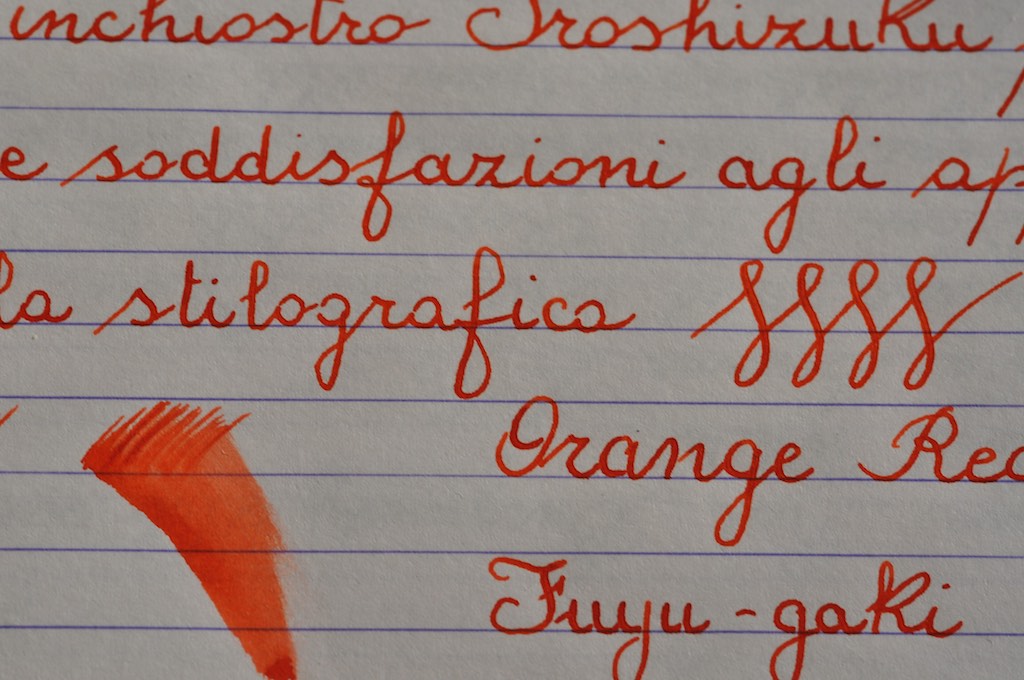 inchiostro Iroshizuku
e soddisfazioni agli ap
la stilografica
Orange Red
Fuyu-gaki